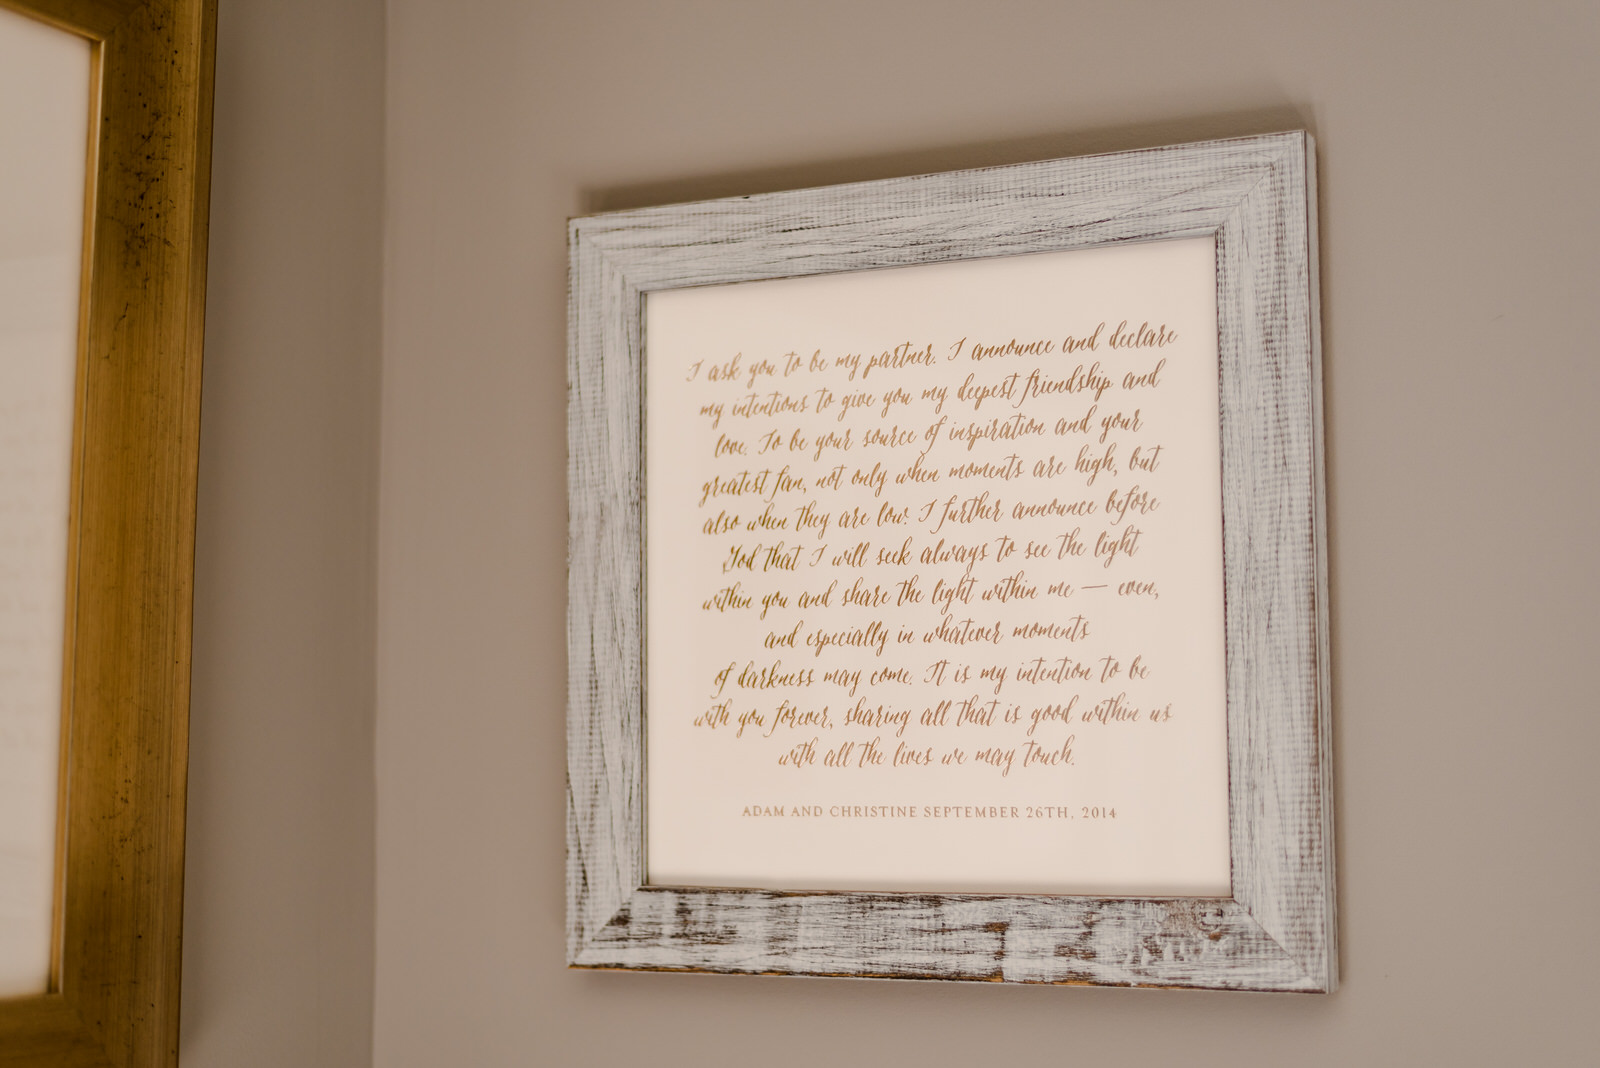 I ask you to be my partner. I announce and declare
my intentions to give you my deepest friendship and
love. To be your source of inspiration and your
greatest fan, not only when moments are high, but
also when they are low. I further announce before
God that I will seek always to see the light
within you and share the light within me — even,
and especially in whatever moments
of darkness may come. It is my intention to be
with you forever, sharing all that is good within us
with all the lives we may touch.
ADAM AND CHRISTINE SEPTEMBER 26TH, 2014